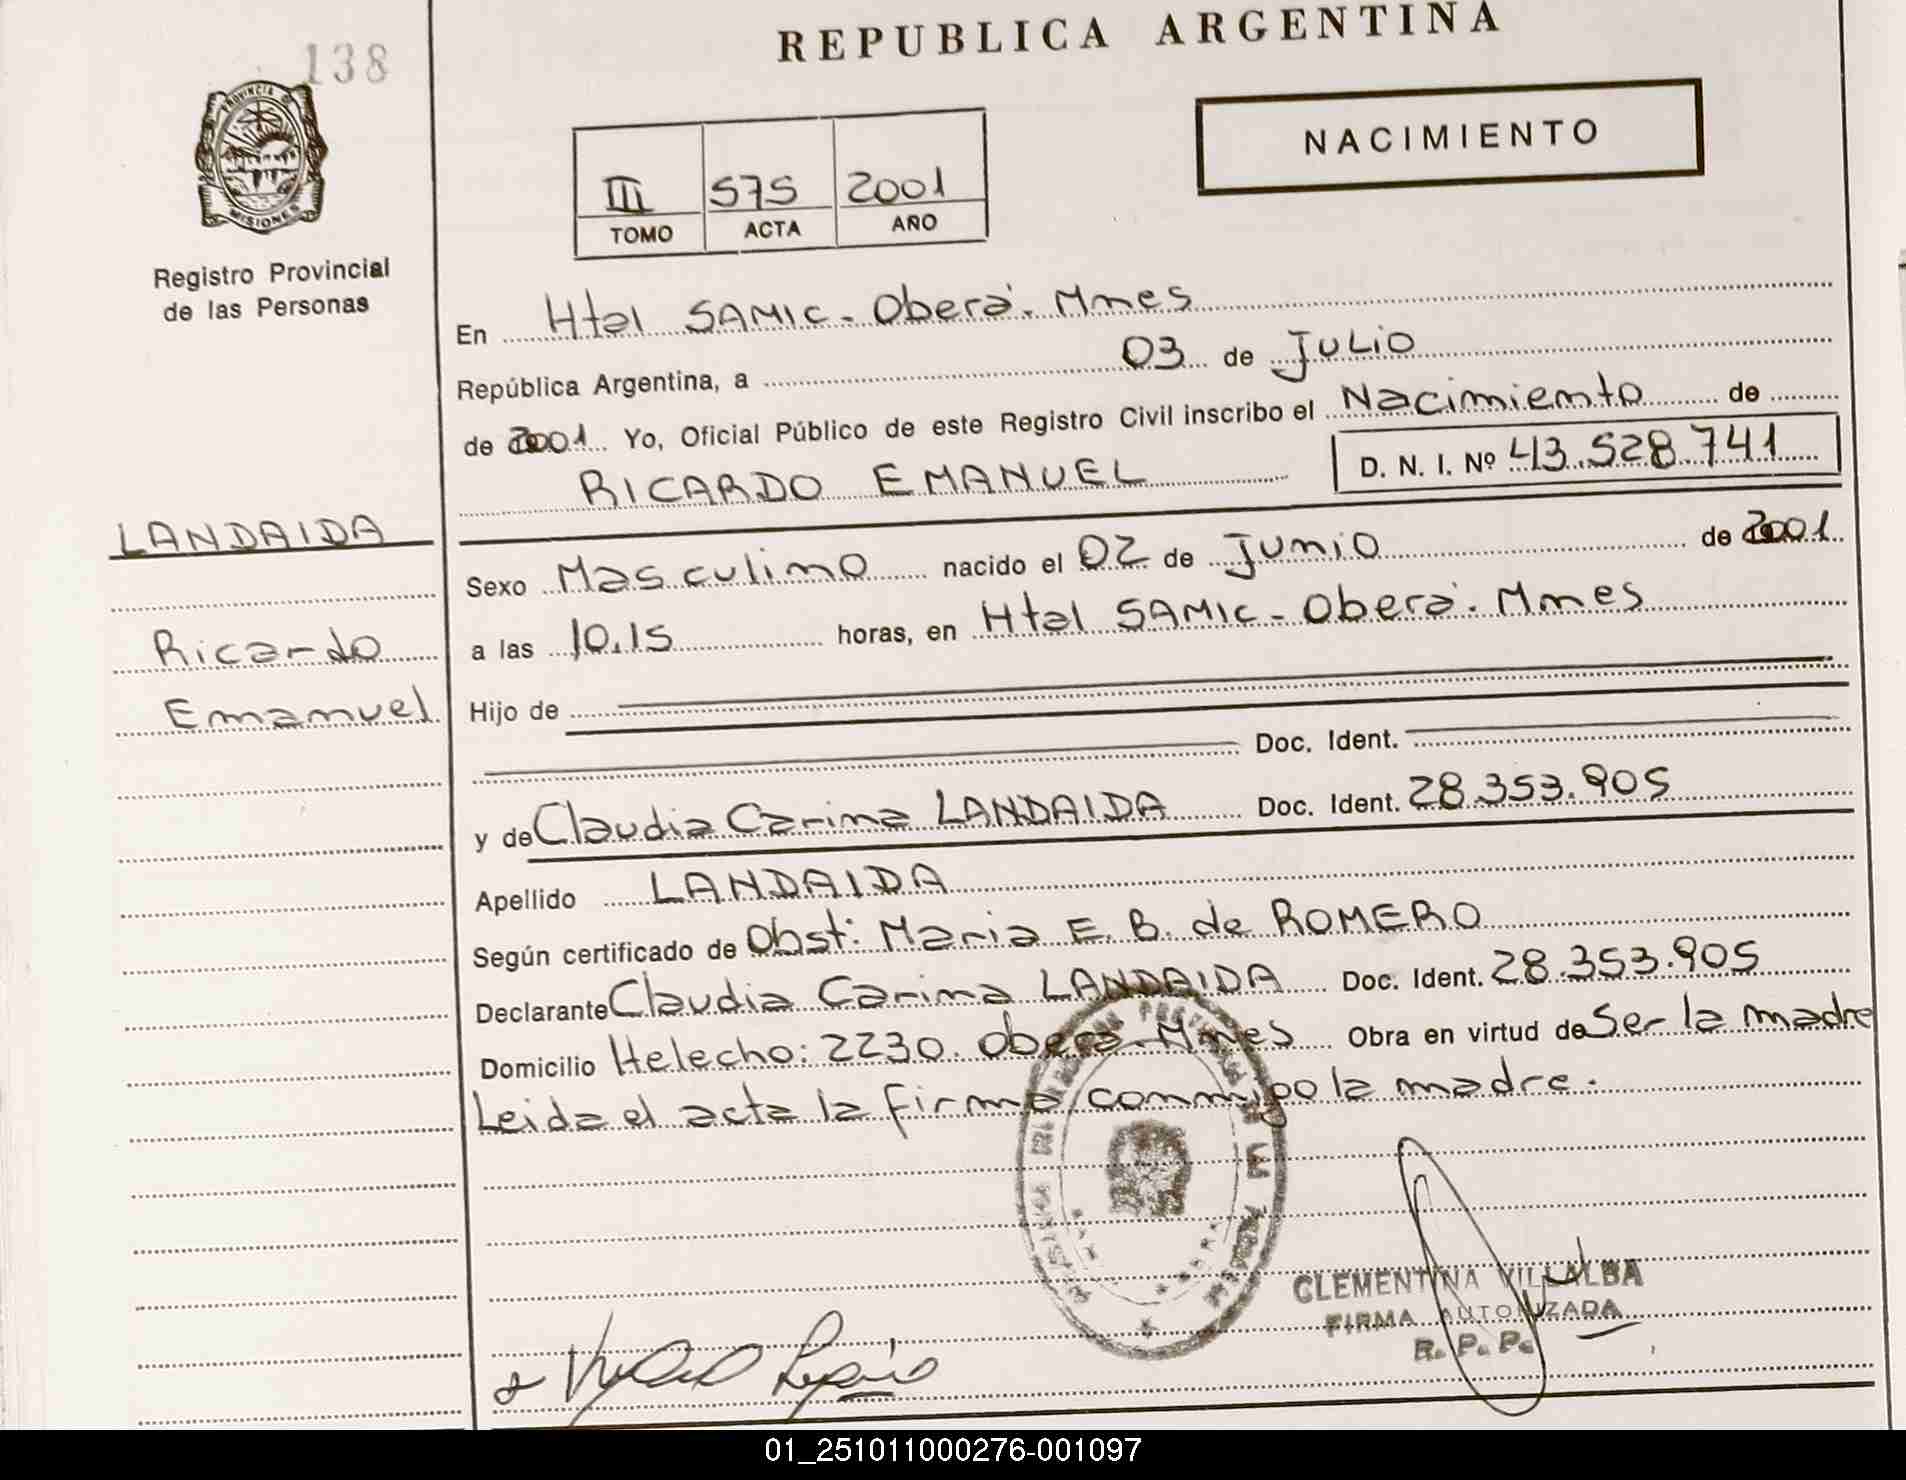 138
REPUBLICA ARGENTINA
PROVINCIA DE
MISIONES
Registro Provincial
de las Personas
III 575 2001
TOMO ACTA AÑO
NACIMIENTO
En Htal SAMIC - Oberá. Mnes
República Argentina, a 03 de Julio
de 2001 Yo, Oficial Público de este Registro Civil inscribo el Nacimiento de
RICARDO EMANUEL D. N. I. Nº 43.528.741
LANDAIDA
Ricardo
Emanuel
Sexo Masculino nacido el 02 de Junio de 2001
a las 10.15 horas, en Htal SAMIC - Oberá. Mnes
Hijo de
Doc. Ident.
y de Claudia Carina LANDAIDA Doc. Ident. 28.353.905
Apellido LANDAIDA
Según certificado de Obst: Maria E. B. de ROMERO
Declarante Claudia Carina LANDAIDA Doc. Ident. 28.353.905
Domicilio Helecho: 2230. Oberá. Mnes Obra en virtud de Ser la madre
Leida el acta la firma conmigo la madre.
CLEMENTINA VILLALBA
FIRMA AUTORIZADA
R. P. P.
01_251011000276-001097